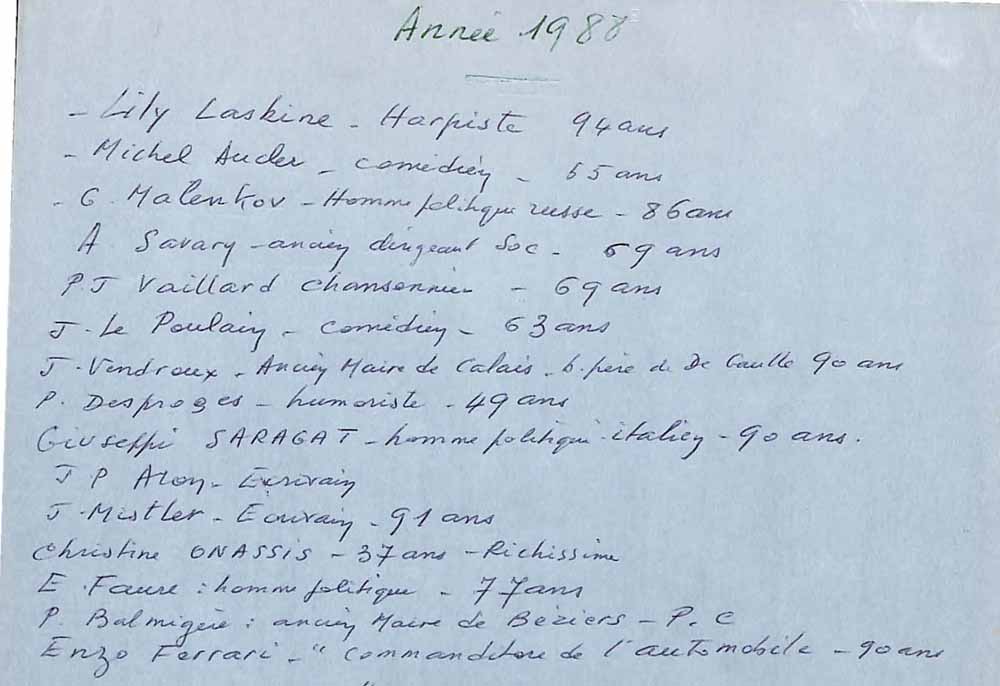 Année 1988
- Lily Laskine - Harpiste 94 ans
- Michel Auder - comédien - 65 ans
- G. Malenkov - Homme politique russe - 86 ans
A. Savary - ancien dirigeant Soc - 69 ans
P.J Vaillard chansonnier - 69 ans
J. Le Poulain - comédien - 63 ans
J. Vendroux - Ancien Maire de Calais - b. père de De Gaulle 90 ans
P. Desproges - humoriste - 49 ans
Giuseppi SARAGAT - homme politique italien - 90 ans.
J P Aron - Ecrivain
J. Mistler - Ecrivain - 91 ans
Christine ONASSIS - 37 ans - Richissime
E. Faure : homme politique - 77 ans
P. Balmigère : ancien Maire de Béziers - P.C
Enzo Ferrari - " Commanditore de l'automobile - 90 ans